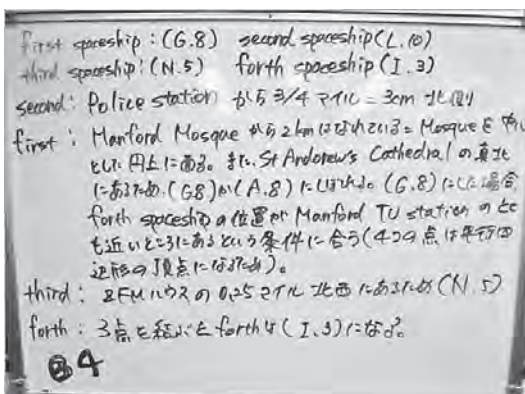 first spaceship : (G.8) second spaceship (L.10)
third spaceship : (N.5) forth spaceship (I.3)
second : Police station から 3/4 マイル = 3cm 北側
first : Manford Mosque から 2kmはなれている = Mosque を中心
とした円上にある。また、St Andorew's Cathedral の真北
にあるため、(G8)か(A.8)にしぼれる。(G.8)にした場合
forth spaceship の位置が Manford TU station のとて
も近いところにあるという条件に合う(4つの点は平行四
辺形の頂点になるため)。
third : ZFMハウスの 0.25マイル 北西にあるため (N.5)
forth : 3点を結ぶと forthは (I.3)になる。
4